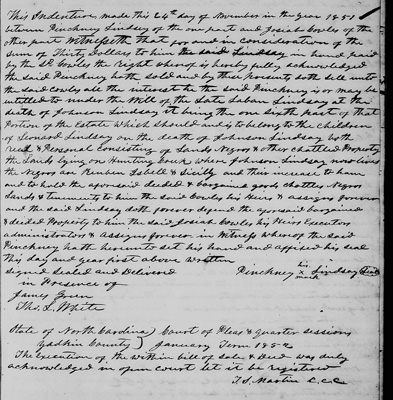 This Indenture made this 24th day of November in the year 1851
between Pinckney Lindsay of the one part and Josiah Cowles of the
other part Witnesseth that for and in consideration of the
Sum of Thirty Dollars to him the said Lindsay in hand paid
by the sd Cowles the Right whereof is hereby fully acknowledged
the said Pinckney hath sold and by these presents doth sell unto
the said Cowles all the interest he the said Pinckney is or may be
intitled to under the Will of the Late Laban Lindsay at the
death of Johnson Lindsay it being the one sixth part of that
Portion of the Estate which should and is to belong to the children
of Leonard Lindsay on the death of Johnson Lindsay both
real & Personal Consisting of Lands Negros & other chattled Property
the Lands lying on Hunting Creek where Johnson Lindsay now lives
the Negros are Reuben Isbell & Sicilly and their increase to have
and to hold the aforesaid deeded & bargained goods chattles Negros
lands & tenements to him the said Cowles his Heirs & assigns forever
and the said Lindsay doth forever defend the aforesaid bargained
& deeded Property to him the said Josiah Cowles his Heirs Executors
administrators & assigns forever in Witness whereof the said
Pinckney hath hereunto set his hand and affixed his seal
this day and year first above written
Signed Sealed and Delivered Pinckney his x mark Lindsay Seal
in Presence of
James Green
Tho. L. White
State of North Carolina) Court of Pleas & Quarter sessions
Yadkin County) January Term 1852
The Execution of the within bill of sale & Deed was duly
acknowledged in open court let it be registered
T. S. Martin C.C.C